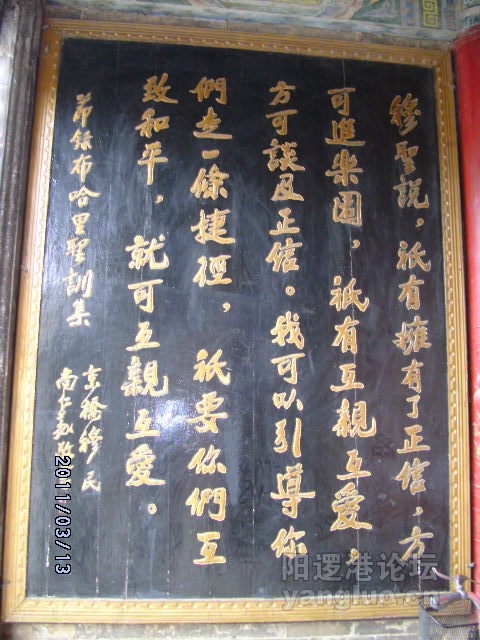 穆聖說，祇有擁有了正信，方
可進樂園，祇有互親互愛，
方可談及正信。我可以引導你
們走一條捷徑，祇要你們互
致和平，就可互親互愛。
节錄布哈里聖訓集
京 穆民
尚仁
2011/03/13
阳逻港论坛